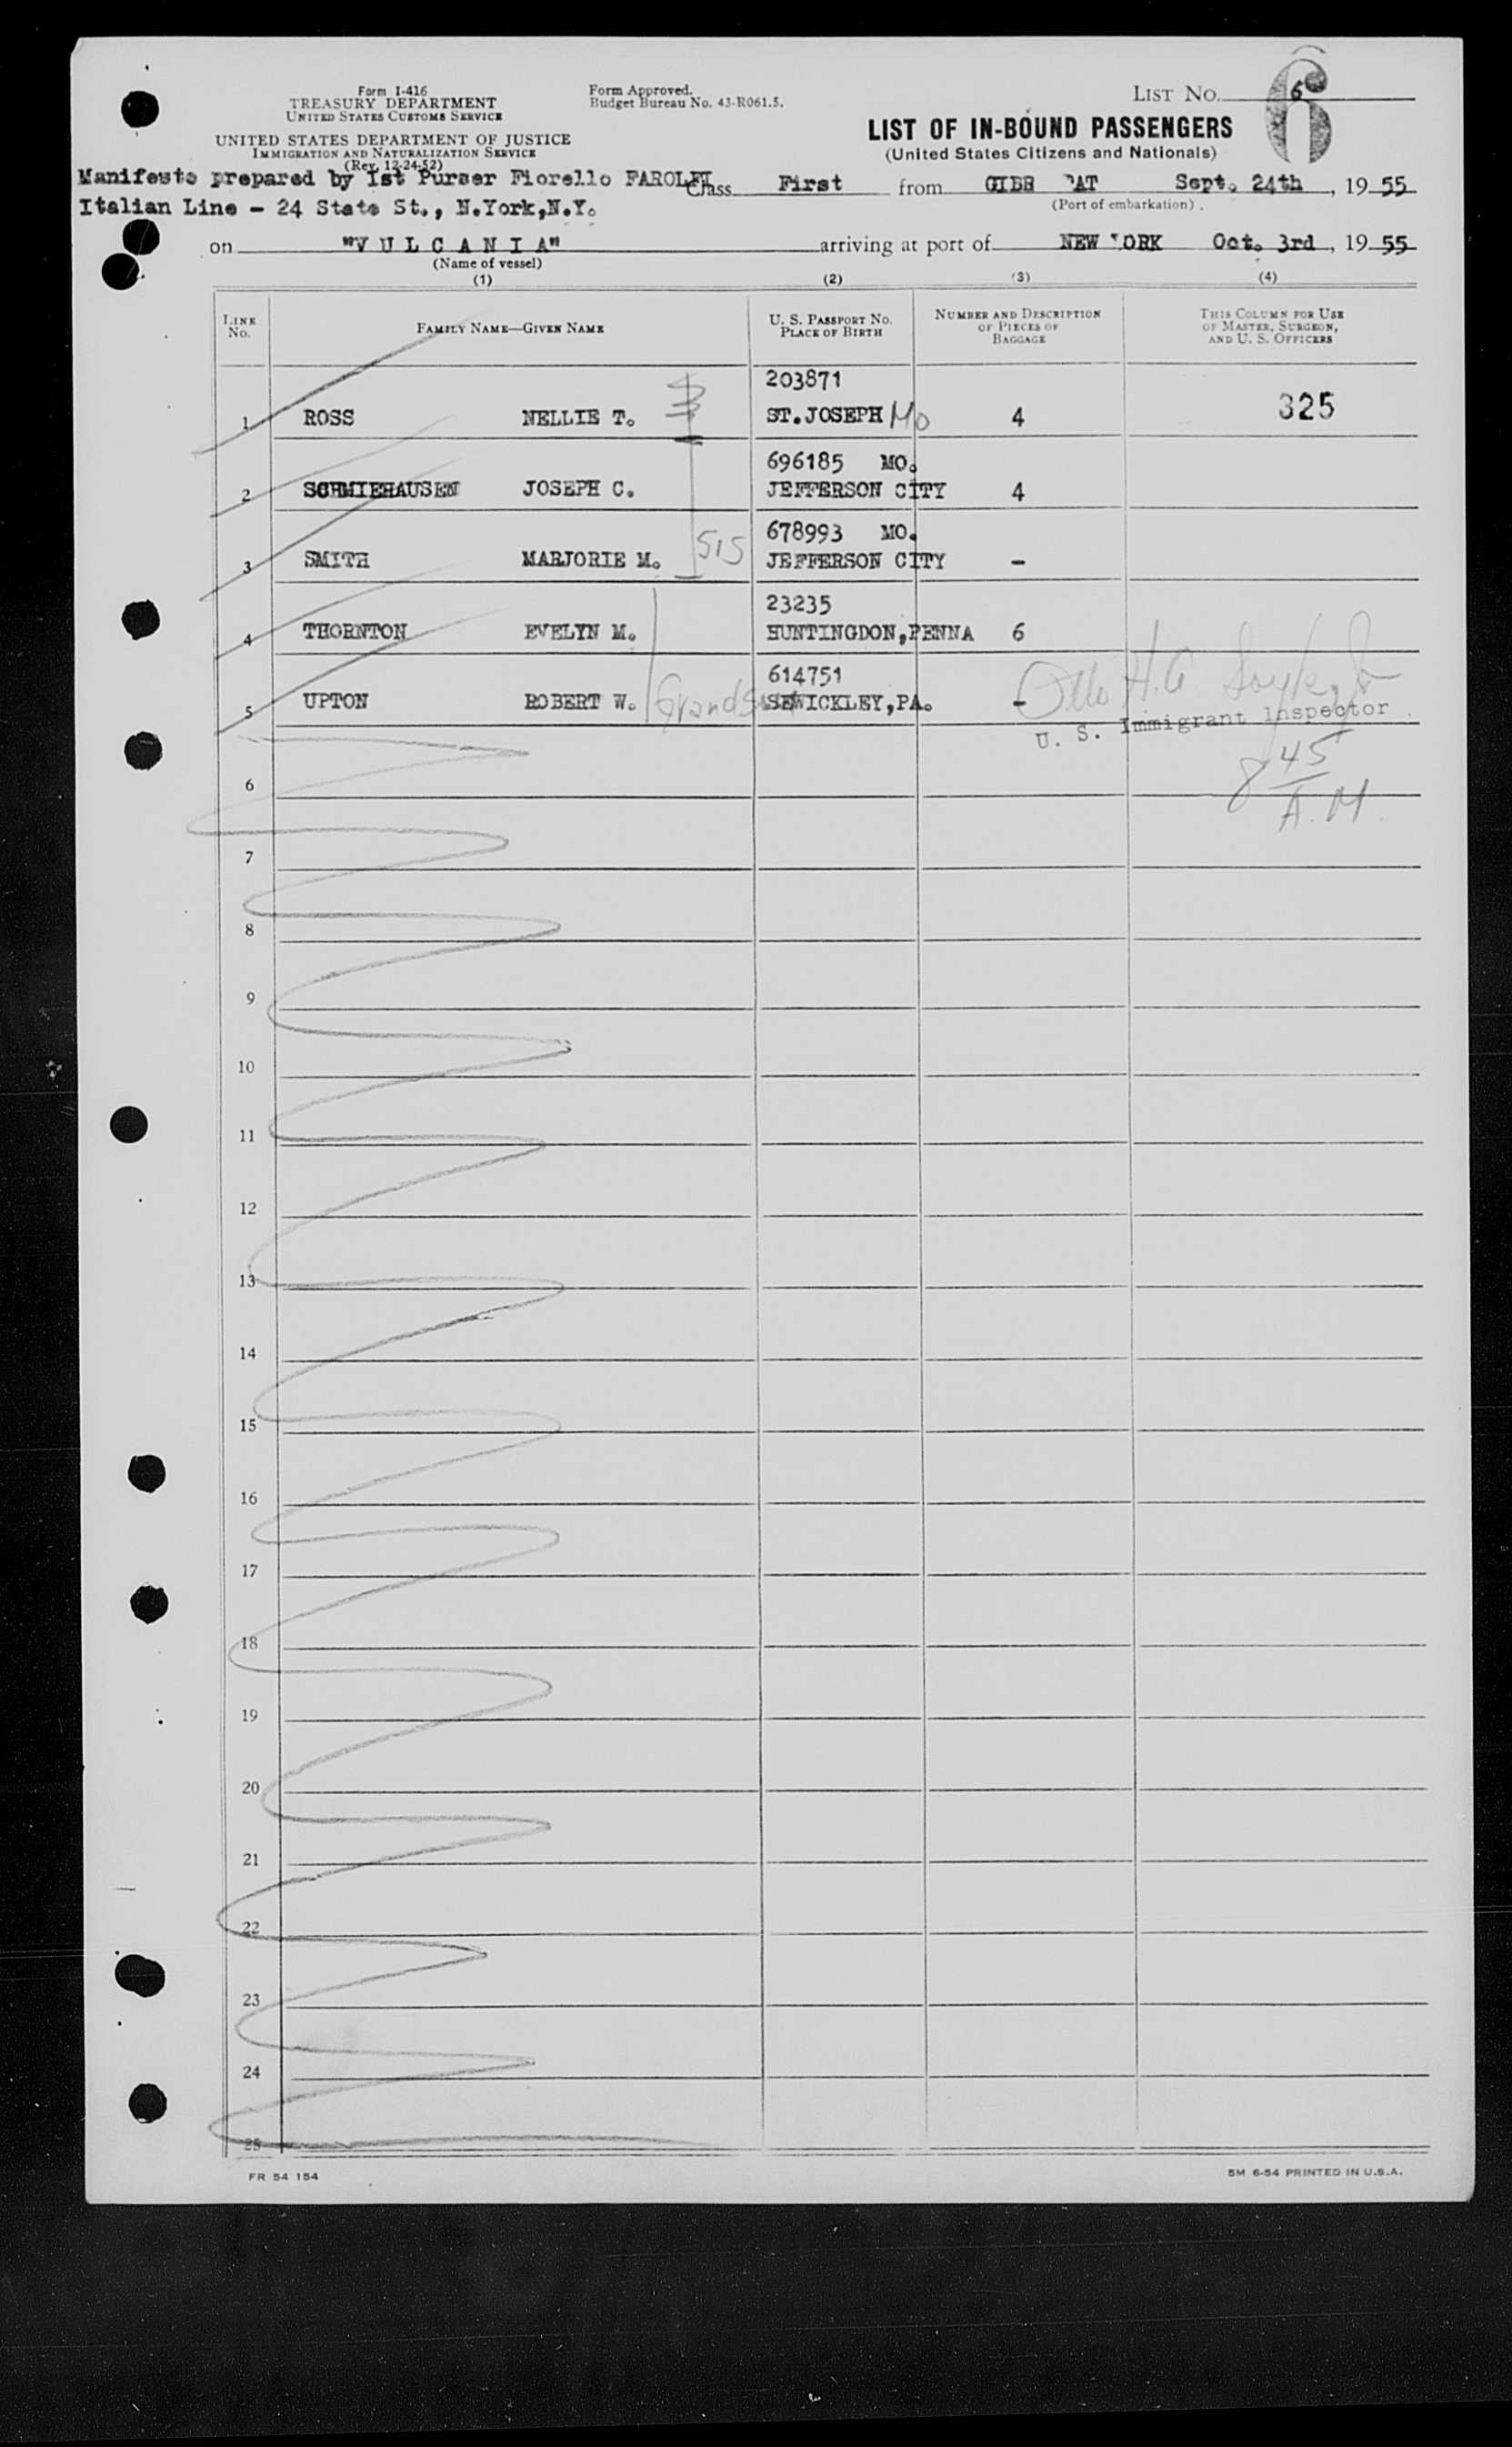 Form I-416
TREASURY DEPARTMENT
UNITED STATES CUSTOMS SERVICE
UNITED STATES DEPARTMENT OF JUSTICE
IMMIGRATION AND NATURALIZATION SERVICE
(Rev. 12-24-52)
Form Approved.
Budget Bureau No. 43-R061.5.
LIST No. 6
6
LIST OF IN-BOUND PASSENGERS
(United States Citizens and Nationals)
Manifests prepared by Ist Purser Fiorello
Italian Line - 24 State St., N.York,N.Y.
Class First from GIBR Sept. 24th, 1955
(Port of embarkation)
on "VULCANIA" arriving at port of NEW YORK Oct. 3rd, 1955
(Name of vessel)
(1) (2) (3) (4)
LINE No. FAMILY NAME—GIVEN NAME U. S. PASSPORT No. PLACE OF BIRTH NUMBER AND DESCRIPTION OF PIECES OF BAGGAGE THIS COLUMN FOR USE OF MASTER, SURGEON, AND U. S. OFFICERS
203871
1 ROSS NELLIE T. ST.JOSEPH Mo 4 325
696185 MO.
2 SCHMIEHAUSEN JOSEPH C. JEFFERSON CITY 4
678993 MO.
3 SMITH MARJORIE M. sis JEFFERSON CITY -
23235
4 THORNTON EVELYN M. HUNTINGDON,PENNA 6
614751
5 UPTON ROBERT W. Grandson SEWICKLEY,PA. -
Otto H.
U. S. Immigrant Inspector
8 45
A.M.
6
7
8
9
10
11
12
13
14
15
16
17
18
19
20
21
22
23
24
25
FR 54 154
5M 6-54 PRINTED IN U.S.A.